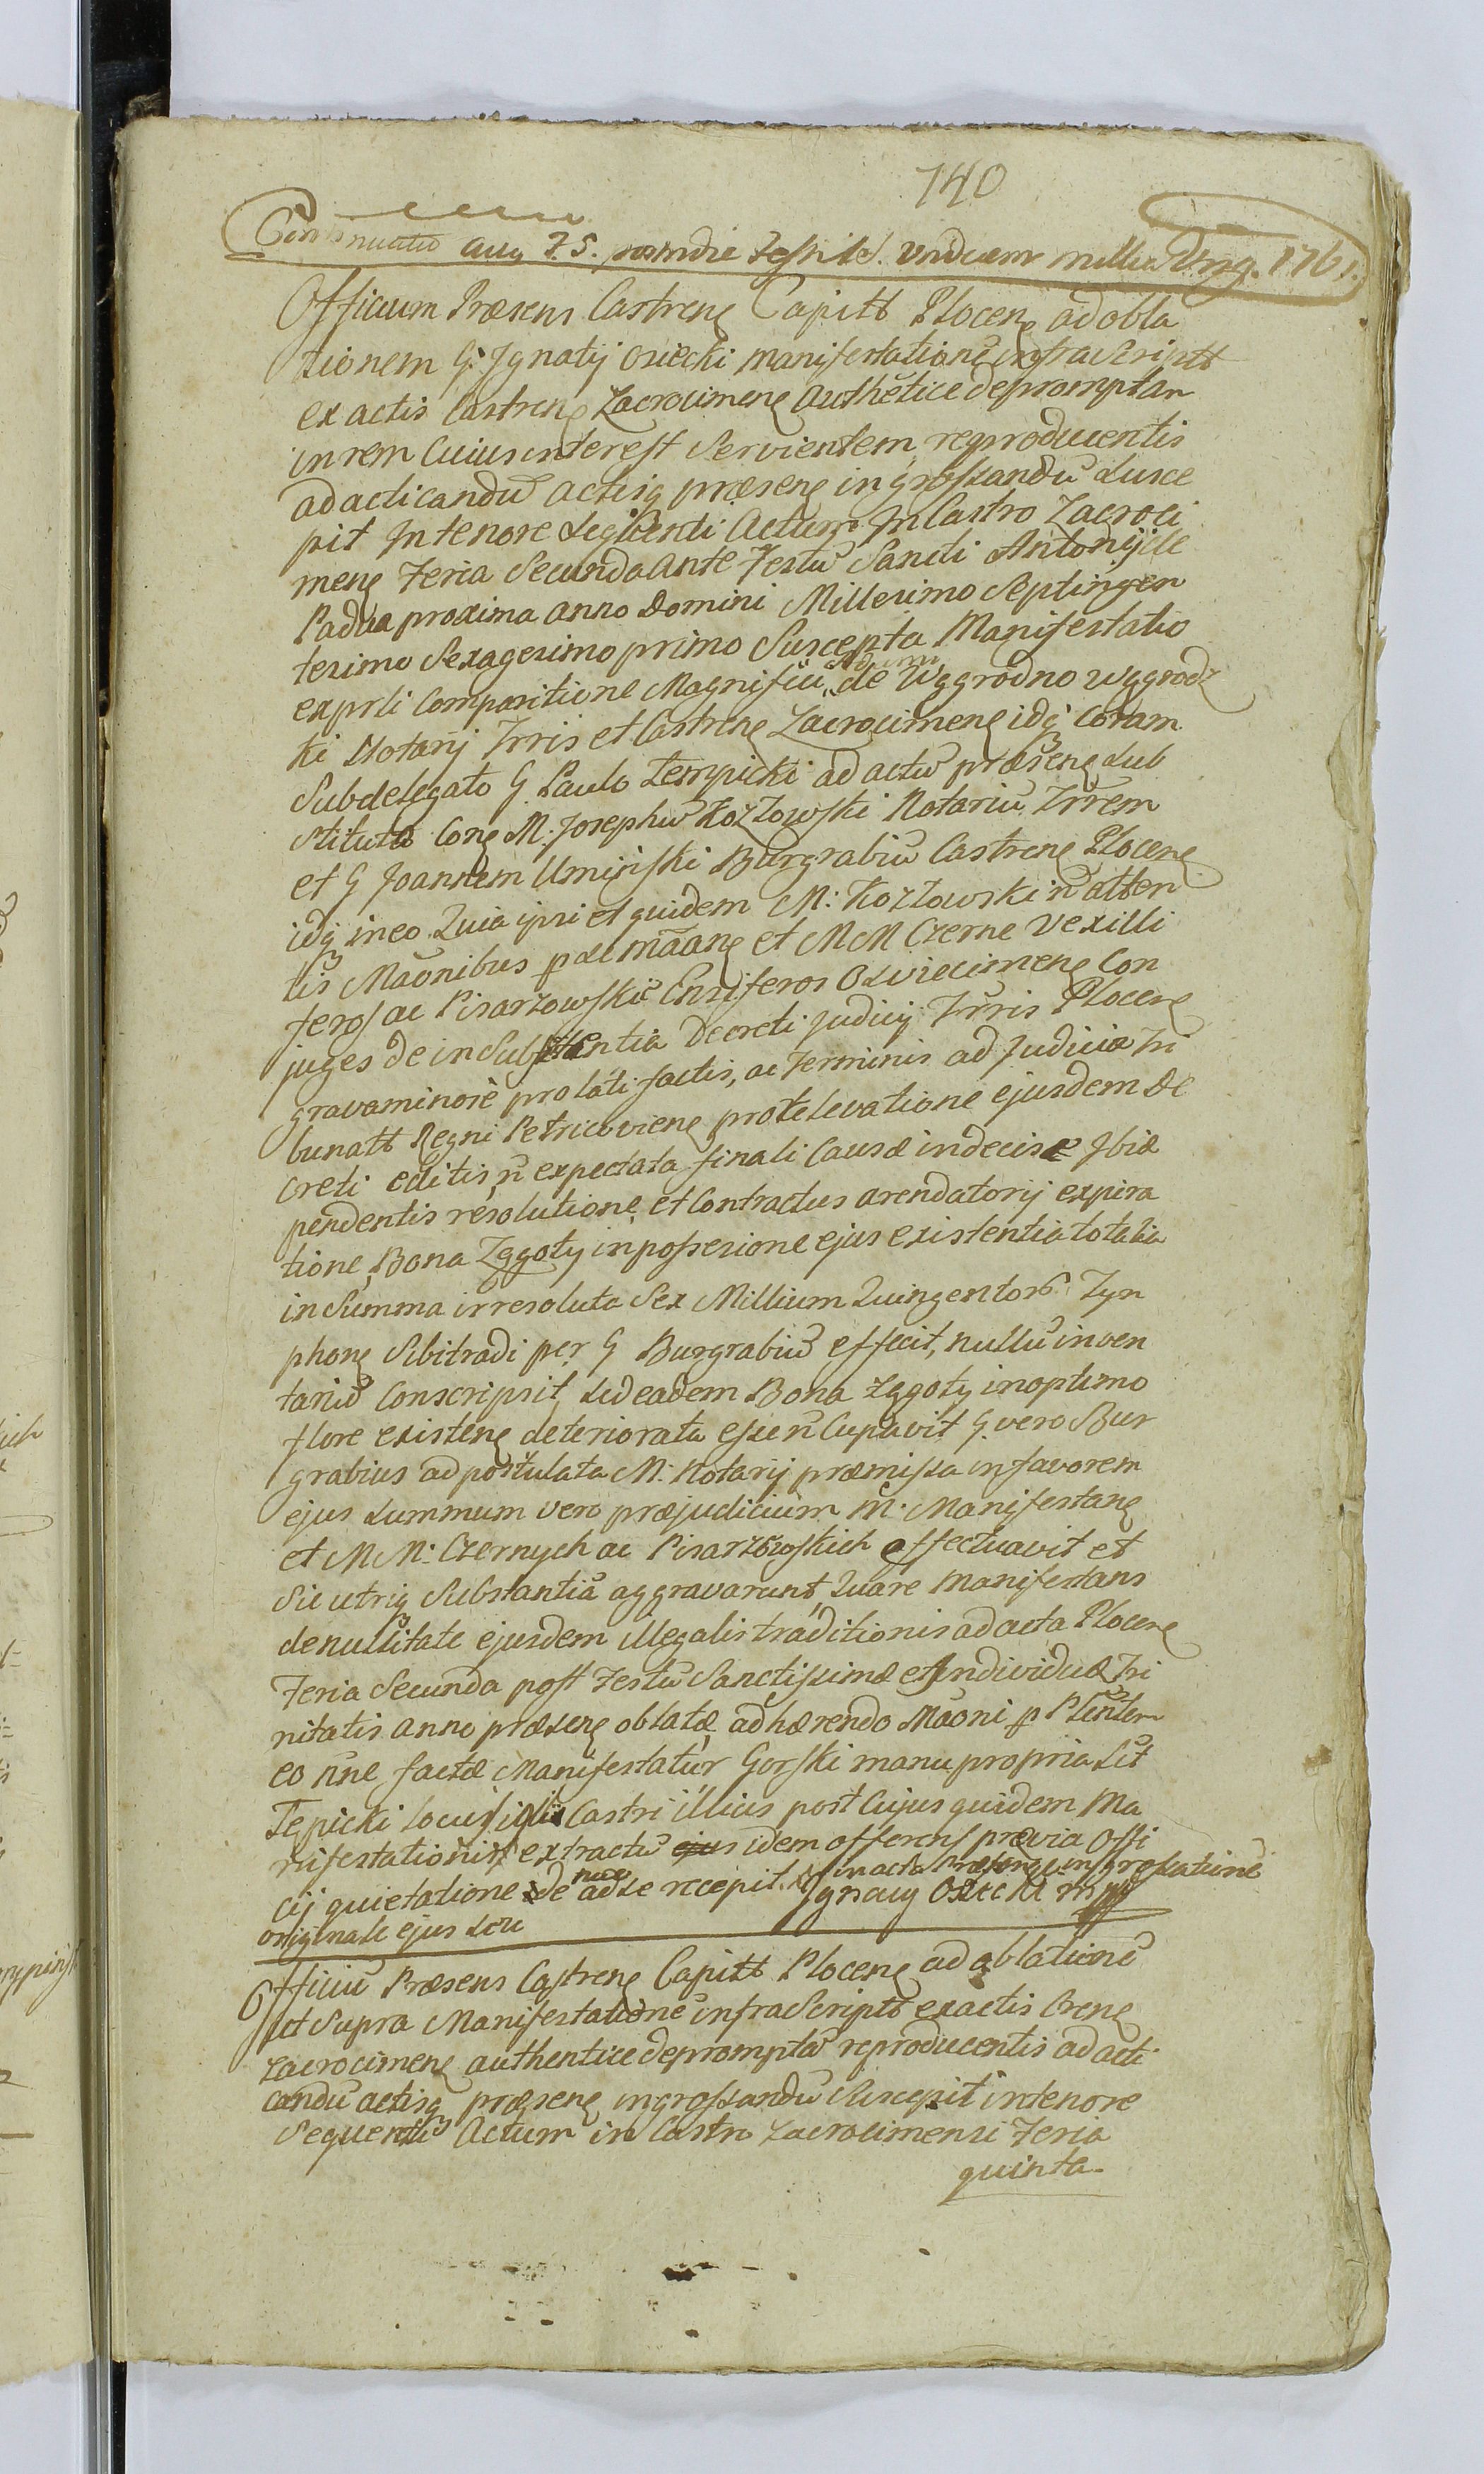 140
Continuatio F. S. Vnd. 1761.
Officium Præsens Castrenę Capitt Plocenę ad obla
tionem G: Jgnatij Osiecki manifestationę infrascriptt
ex actis Castrenę Zacrocimenę Authẽtice depromptam
in rem Cuius interest Servientem reproducentis
ad acticandũ actisq præsenę ingrossandũ Susce
pit Jn tenore Seqũenti Actum Jn Castro Zacroci
menę Feria Secunda ante Festũ Sancti Antonij de
Padua proxima anno Domini Millesimo Septingen
tesimo Sexagesimo primo Suscepta Manifestatio
ex prli Comparitione Magnifici de Wygrodno Wygrodz
ki Notarij Trris et Castrenę Zacrocimenę idq Coram
Subdelegato G. Paulo Lempicki ad actũ præsenę Sub
stituto Conę M. Josephũ Kozłowski Notariũ Trrem
et G Joannem Uminski Burgrabiũ Castrenę Plocenę
idq in eo Quia ipsi et quidem M: Kozłowski ñ atten
tis Maõnibus p de mãanę et M M Czerne Vexilli
feros ac Pisarzowskie Ensiferos Oswiecimenę Con
juges de in Substantia Decreti Judicij Trris Plocenę
gravaminose prolati factis, ac Terminis ad Judicia Tri
bunatt Regni Petricovienę pro televatione ejusdem De
creti editis, ñ expectata finali Causæ indecisæ Jbiæ
pendentis resolutione, et Contractus arendatorij expira
tione, Bona Zggoty in possesione ejus existentia totalia
in Summa irresoluta Sex Millium Quingentorũ Tyn
phonę Sibi tradi per G Burgrabiũ effecit, nullũ inven
tariũ Conscripsit, Sed eadem Bona Zggoty in optimo
flore existenę deteriorata esse ñ Cupavit G. vero Bur
grabius ad postulata M: Notarij præmissa in favorem
ejus Summum vero præjudicium M. Manifestanę
et M M: Czernych ac Pisarzowskich effectuavit et
Sic utriq Substantiã aggravarunt, Quare Manifestans
de nullitate ejusdem illegalis traditionis ad acta Plocenę
Feria Secunda post Festũ Sanctissimæ et Individuæ Tri
nitatis anno præsenę oblatæ, adhærendo Mãoni p Pltenten
eo ñne factæ Manifestatur Gorski manu propria Sit
Lępicki Locus Sigilli Castri illius post Cujus quidem Ma
nifestationis extractũ ejus idem offerens prævia Offi
cij quietatione de ad Se recepit. in acta Præsenę ingrossatione
originale ejus Seu Jgnacy Osiecki mpp
Officiũ Præsens Castrenę Capitt Plocenę ad oblationẽ
ut Supra Manifestationẽ infrascriptt ex actis Crenę
Zacrocimenę authentice depromptã reproducentis ad acti
candũ actisq præsenę ingrossandũ Suscepit in tenore
Sequenti Actum in Castro Zacrocimensi Feria
quinta